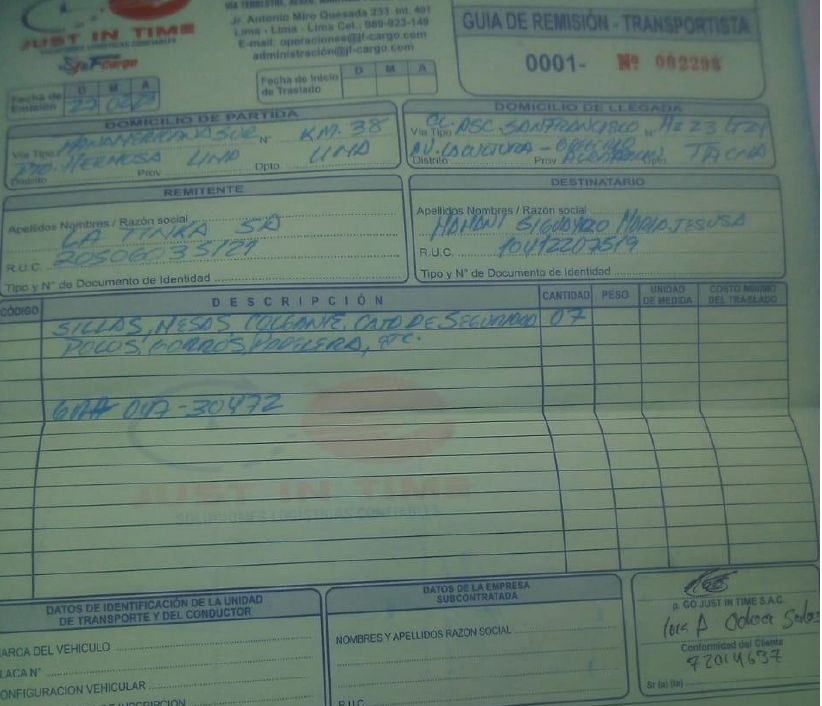 JUST IN TIME
Jr. Antonio Miro Quesada 233 Int. 401
Lima - Lima - Lima Cel.: 989-923-149
E-mail: operaciones@jf-cargo.com
administración@jf-cargo.com
GUIA DE REMISIÓN - TRANSPORTISTA
0001- Nº 002298
Fecha de Emisión D M A
Fecha de Inicio de Traslado D M A
DOMICILIO DE PARTIDA
Vía Tipo Nº KM. 38
HERMOSA LIMA LIMA
Distrito Prov Dpto
DOMICILIO DE LLEGADA
Vía Tipo ASC. SAN FRANCISCO Nº Mz 23
AV. LA CULTURA - TACNA
Distrito Prov Dpto
REMITENTE
Apellidos Nombres / Razón social
LA TINKA SA
R.U.C. 20506035121
Tipo y Nº de Documento de Identidad
DESTINATARIO
Apellidos Nombres / Razón social
MAMANI MARIA JESUSA
R.U.C. 10412207519
Tipo y Nº de Documento de Identidad
CÓDIGO DESCRIPCIÓN CANTIDAD PESO UNIDAD DE MEDIDA COSTO MINIMO DEL TRASLADO
SILLAS, MESAS, COLGANTE, DE SEGURIDAD 07
POLOS, GORROS, PAPELERA, ETC.
047-30472
JUST IN TIME
DATOS DE IDENTIFICACIÓN DE LA UNIDAD
DE TRANSPORTE Y DEL CONDUCTOR
ARCA DEL VEHICULO
LACA Nº
ONFIGURACION VEHICULAR
DATOS DE LA EMPRESA
SUBCONTRATADA
NOMBRES Y APELLIDOS RAZON SOCIAL
R.U.C.
p. GO JUST IN TIME S.A.C.
Conformidad del Cliente
72014637
Sr (a) (ta)